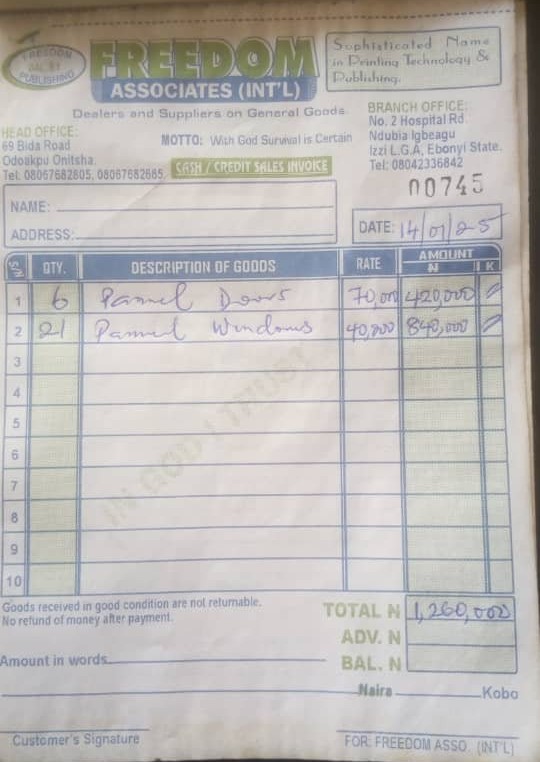 FREEDOM
ASSOCIATES (INT'L)
Sophisticated Name
in Printing Technology &
Publishing.
FREEDOM
PUBLISHING
Dealers and Suppliers on General Goods.
HEAD OFFICE:
69 Bida Road
Odoakpu Onitsha.
Tel. 08067682805, 08067682665
MOTTO: With God Survival is Certain
CASH / CREDIT SALES INVOICE
BRANCH OFFICE:
No. 2 Hospital Rd.
Ndubia Igbeagu
Izzi L.G.A, Ebonyi State.
Tel: 08042336842
00745
NAME:
ADDRESS:
DATE: 14/01/25
S/N QTY. DESCRIPTION OF GOODS RATE AMOUNT
N K
1 6 Pannel Doors 70,000 420,000 =
2 21 Pannel Windows 40,000 840,000 =
3
4
5
6
7
8
9
10
IN GOD I TRUST
Goods received in good condition are not returnable.
No refund of money after payment.
TOTAL N 1,260,000
ADV. N
BAL. N
Amount in words
Naira Kobo
Customer's Signature
FOR: FREEDOM ASSO. (INT'L)